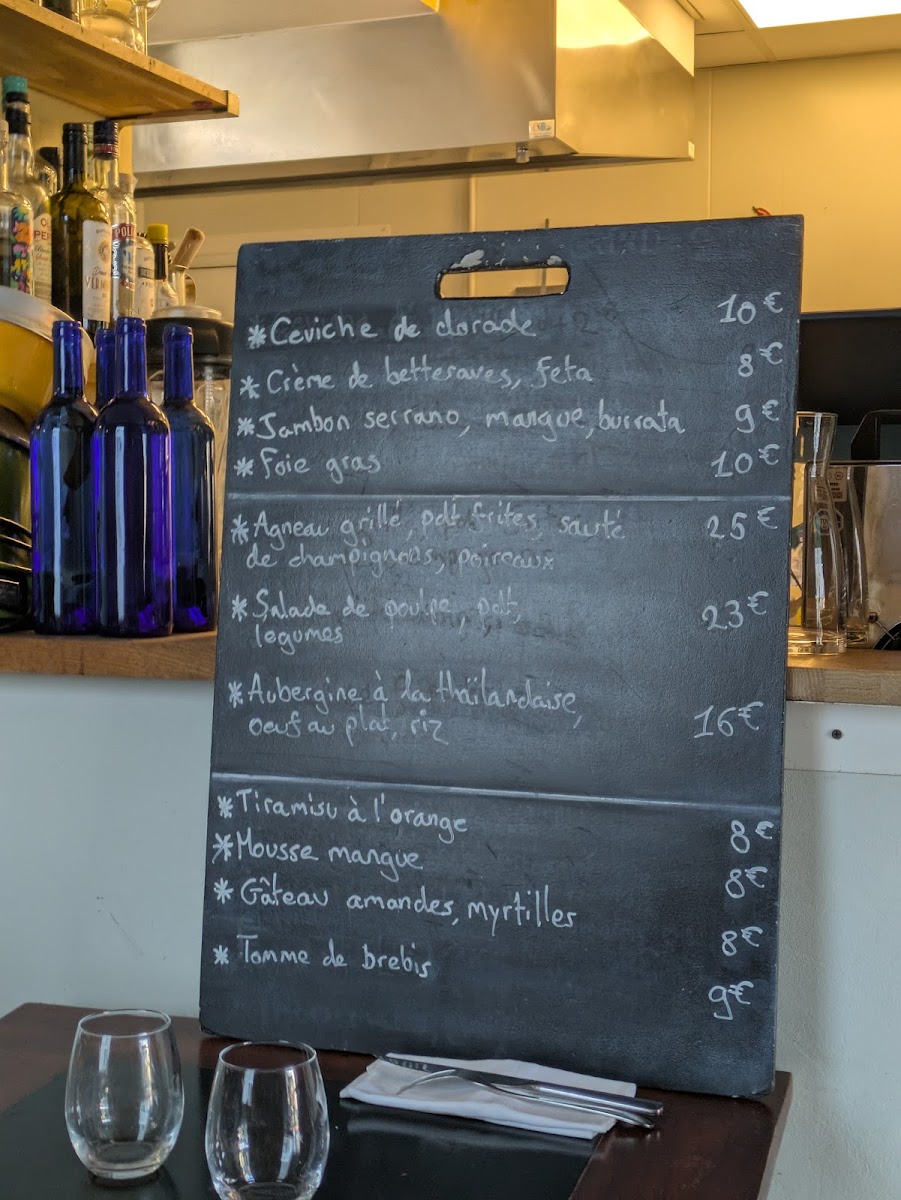 *Ceviche de dorade 10€
*Crème de betteraves, feta 8€
*Jambon serrano, mangue, burrata 9€
*Foie gras 10€
*Agneau grillé, pdt frites, sauté 25€
de champignons, poireaux
*Salade de poulpe, pdt, 23€
légumes
*Aubergine à la thaïlandaise,
oeuf au plat, riz 16€
*Tiramisu à l'orange 8€
*Mousse mangue 8€
*Gâteau amandes, myrtilles 8€
*Tomme de brebis 9€